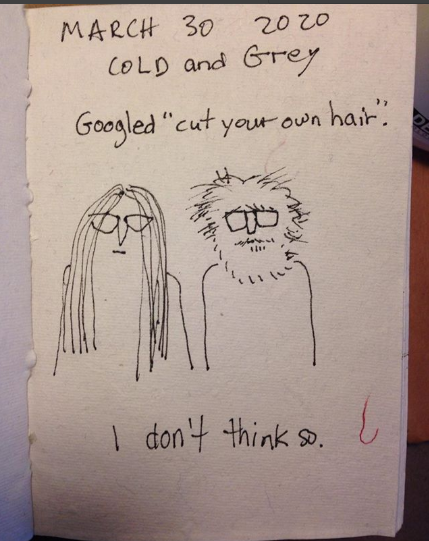 MARCH 30 2020
COLD and Grey
Googled "cut your own hair".
I don't think so.